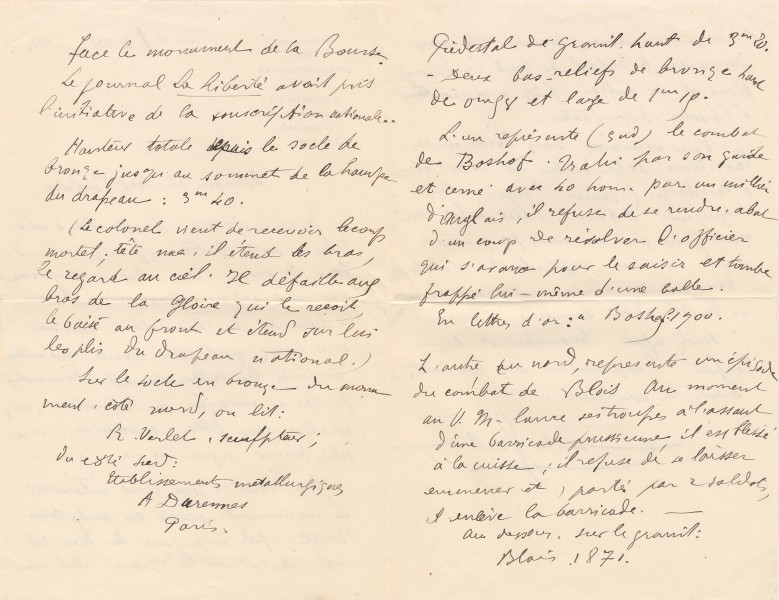 face le monument de la Bourse.
Le journal La Liberté avait pris
l'initiative de la souscription nationale..
Hauteur totale depuis le socle de
bronze jusqu'au sommet de la hampe
du drapeau : 3m 40.
(Le colonel vient de recevoir le coup
mortel; tête nue; il étend les bras,
le regard au ciel. Il défaille aux
bras de la Gloire qui le reçoit,
le baise au front et étend sur lui
les plis du drapeau national.)
Sur le socle en bronze du monu
ment, côté nord, on lit:
R. Verlet, sculpteur;
Du côté sud:
Etablissements métallurgiques
A Durennes
Paris.
Piédestal de granit, haut de 3m 20.
- Deux bas-reliefs de bronze haut
de et large de 1m 19.
L'un représente (sud) le combat
de Boshof. Trahi par son guide
et cerné avec 40 hom. par un millier
d'Anglais, il refuse de se rendre, abat
d'un coup de révolver l'officier
qui s'avance pour le saisir et tombe
frappé lui-même d'une balle.
En lettres d'or : " Boshof 1900.
L'autre au nord, représente un épisode
du combat de Blois Au moment
au V. M. lance ses troupes à l'assaut
d'une barricade prussienne, il est blessé
à la cuisse ; il refuse de se laisser
emmener et, porté par 2 soldats,
il enlève la barricade. —
au dessous, sur le granit:
Blois 1871.